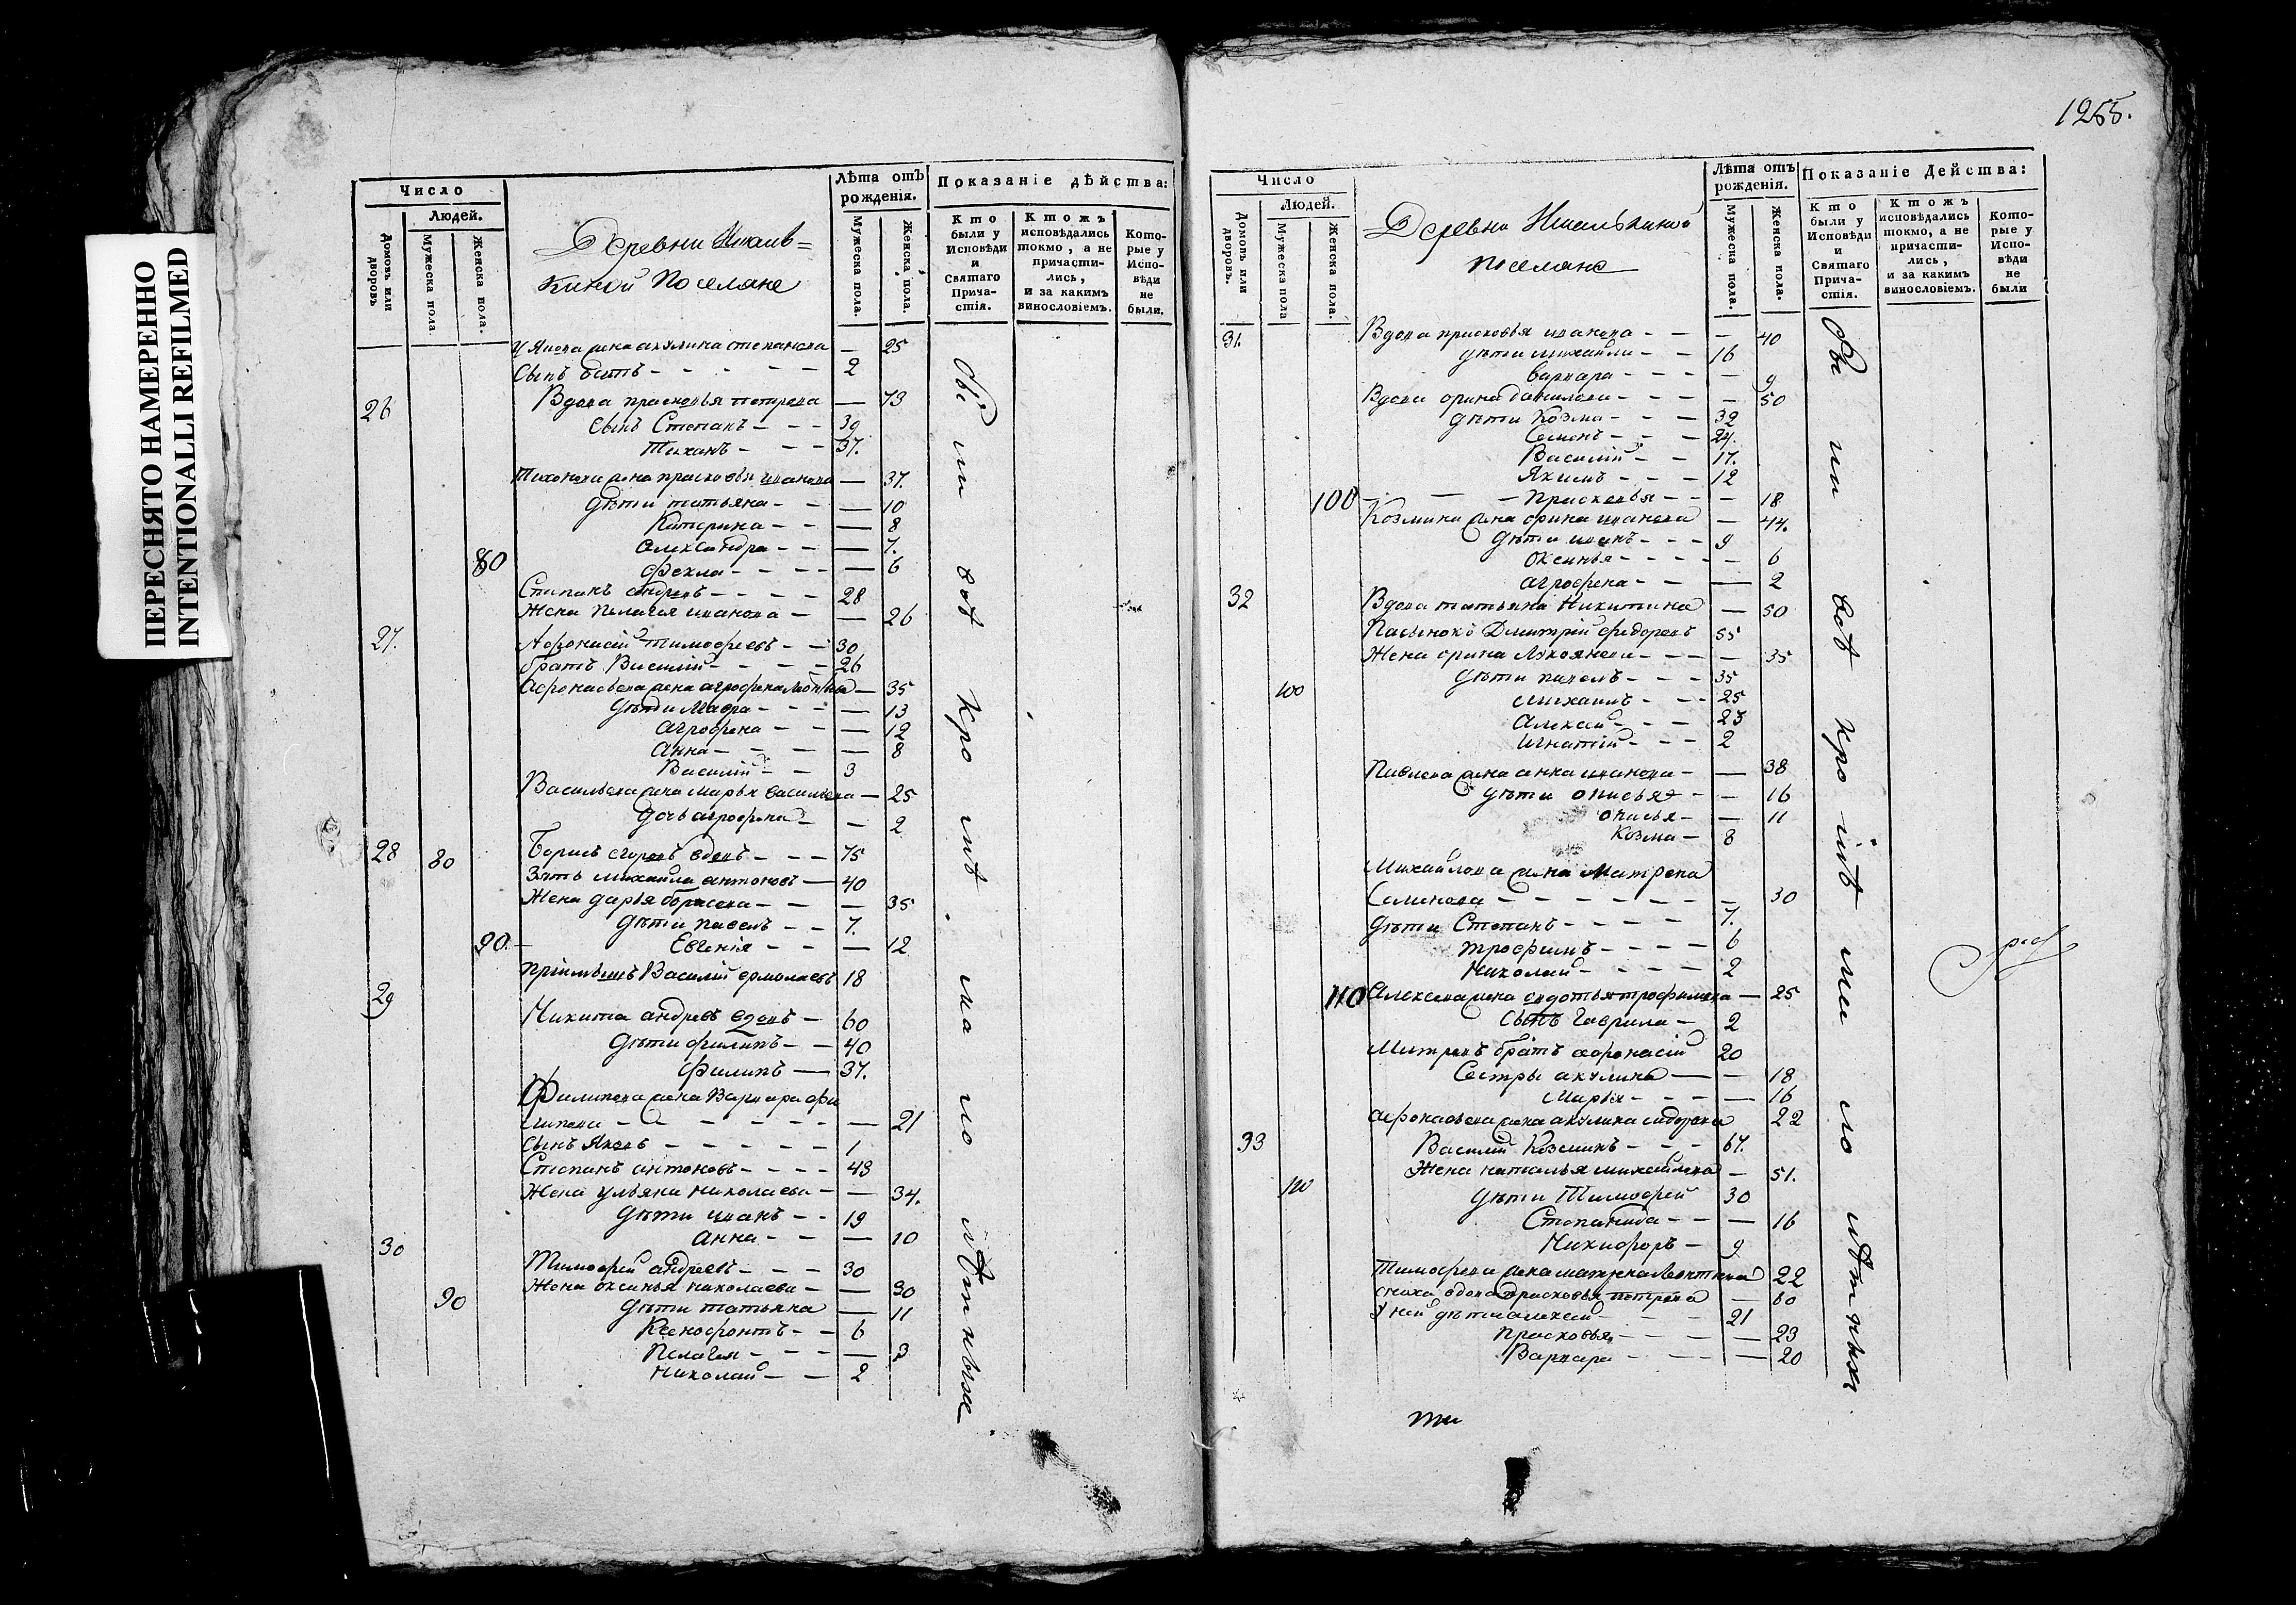 ПЕРЕСНЯТО НАМЕРЕННО
INTENTIONALLI REFILMED
Число
Людей.
Домовъ или дворовъ
Мужеска пола.
Женска пола.
Деревни
киной Поселяне
Лѣта отъ рожденія.
Мужеска пола.
Женска пола.
Показаніе дѣйства:
Кто были у Исповѣди и Святаго Причастія.
Ктожъ исповѣдались токмо, а не причастились, и за какимъ винословіемъ.
Которые у Исповѣди не были.
жена акулина степанова — 25
Сынъ титъ - - - - - 2
26 Вдова прасковья петрова — 73
Сынъ Степанъ - - - 39
Тиханъ - - - 37.
Тихонова жена прасковья иванова — 37.
дѣти татьяна - - — 10
Катерина - - — 8
александра - - — 7.
80 фекла - - - - — 6
Степанъ андреевъ - - - - 28
Жена пелагея иванова - — 26
27. Афонасий тимофеевъ - - 30
братъ Василий - - - - 26
Афонасьева жена агрофена — 35
дѣти Мавра - - - — 13
агрофена - - — 12
анна - - — 8
Василий - - 3
Васильева жена марья васильева — 25
дочь агрофена - — 2
28 80 Борисъ егоровъ вдовъ - - - 75
Зять михайла антоновъ — 40
Жена дарья борисова - - — 35
дѣти павелъ - - 7.
90. Евгенія - - — 12
пріимышъ Василий ермолаевъ 18
29 Никита андреевъ вдовъ - 60
дѣти филипъ - - 40
филипъ — 37.
Филипова жена Варвара фи
липова - - - - - - — 21
Сынъ Яковъ - - - - - 1
Степанъ антоновъ - - - - 43
Жена ульяна николаева - — 34.
дѣти иванъ - - 19
анна - - — 10
30 Тимофей андреевъ - - - 30
Жена оксинья николаева - — 30
90 дѣти татьяна — 11
Ксенофонтъ - - 6
Пелагея - - - — 3
николай - - 2
1255.
Число
Людей.
Домовъ или дворовъ.
Мужеска пола
Женска пола.
Деревни
поселяне
Лѣта отъ рожденія.
Мужеска пола.
Женска пола.
Показаніе Действа:
Кто были у Исповѣди и Святаго Причастія.
Ктожъ исповѣдались токмо, а не причастились, и за какимъ винословіемъ.
Которые у Исповѣди не были
31. Вдова прасковья иванова - - — 40
дѣти михайла - - 16
варвара - - - — 9
Вдова орина данилова - - - — 50
дѣти Козма - - - 32
Семенъ - - - 24.
Василий - - 17.
Якимъ - - - 12
100 - — — прасковья - - — 18
Козмина жена орина иванова — 44.
дѣти иванъ - - - 9
Оксинья - - - - — 6
агрофена - - — 2
32 Вдова татьяна Никитина — 50
Пасынокъ Дмитрій федоровъ 55
Жена орина - - - — 35
100 дѣти павелъ - - - 35
михаилъ - - - 25
алексей - - - 23
игнатій - - - 2
Павлова жена анна иванова - — 38
дѣти - — 16
- — 11
козма - 8
Михайлова жена Матрена
Семенова - - - - - - - — 30
дѣти Степанъ - - - - 7.
трофимъ - - - - 6
Николай - - - - 2
110 алексева жена авдотья трофимова — 25
сынъ гаврила - 2
братъ афонасій 20
Сестры акулина — — 18
марья - - - — 16
афонасьева жена акулина 22
33 Василий Козминъ - - - 67.
Жена наталья михайлова — 51.
100 дѣти Тимофей 30
Степанида - - — 16
Никифоръ - 9
тимофеева жена 22
сноха вдова прасковья петрова — 60
у ней дѣти алексей - - - 21
прасковья - - - — 23
Варвара - - - — 20
ти